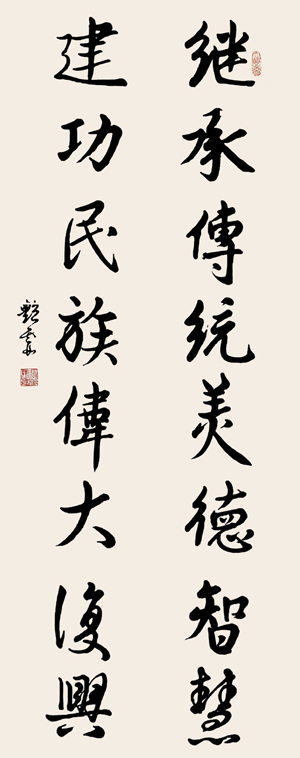 继承傳统美德智慧
建功民族偉大復興